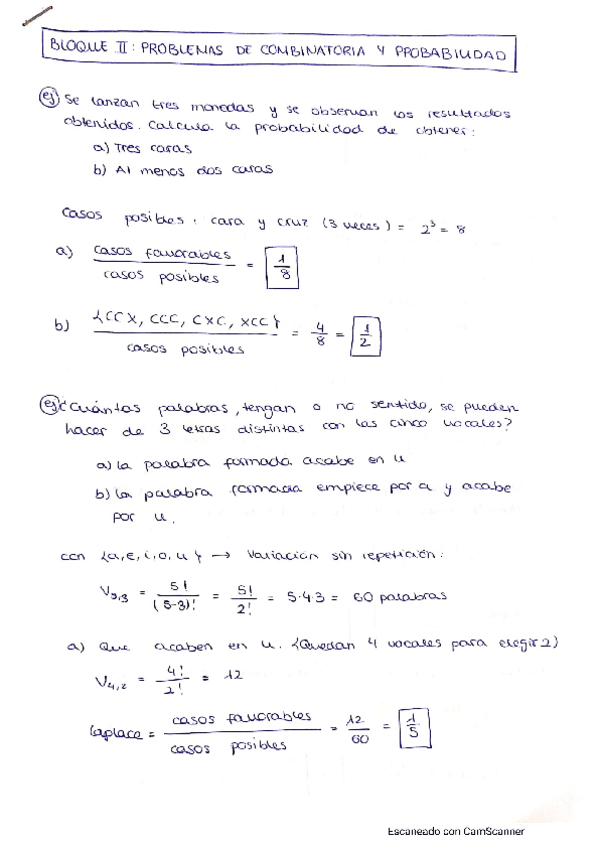 BLOQUE II: PROBLEMAS DE COMBINATORIA Y PROBABILIDAD
ej Se lanzan tres monedas y se observan los resultados
obtenidos. Calcula la probabilidad de obtener:
a) Tres caras
b) Al menos dos caras
Casos posibles: cara y cruz (3 veces) = 2³ = 8
a) casos favorables / casos posibles = 1/8
b) {CCX, CCC, CXC, XCC} / casos posibles = 4/8 = 1/2
ej ¿Cuántas palabras, tengan o no sentido, se pueden
hacer de 3 letras distintas con las cinco vocales?
a) la palabra formada acabe en u
b) la palabra formada empiece por a y acabe
por u.
con {a, e, i, o, u} → Variación sin repetición:
V5,3 = 5! / (5-3)! = 5! / 2! = 5·4·3 = 60 palabras
a) Que acaben en u. {Quedan 4 vocales para elegir 2)
V4,2 = 4! / 2! = 12
Laplace = casos favorables / casos posibles = 12/60 = 1/5
Escaneado con CamScanner